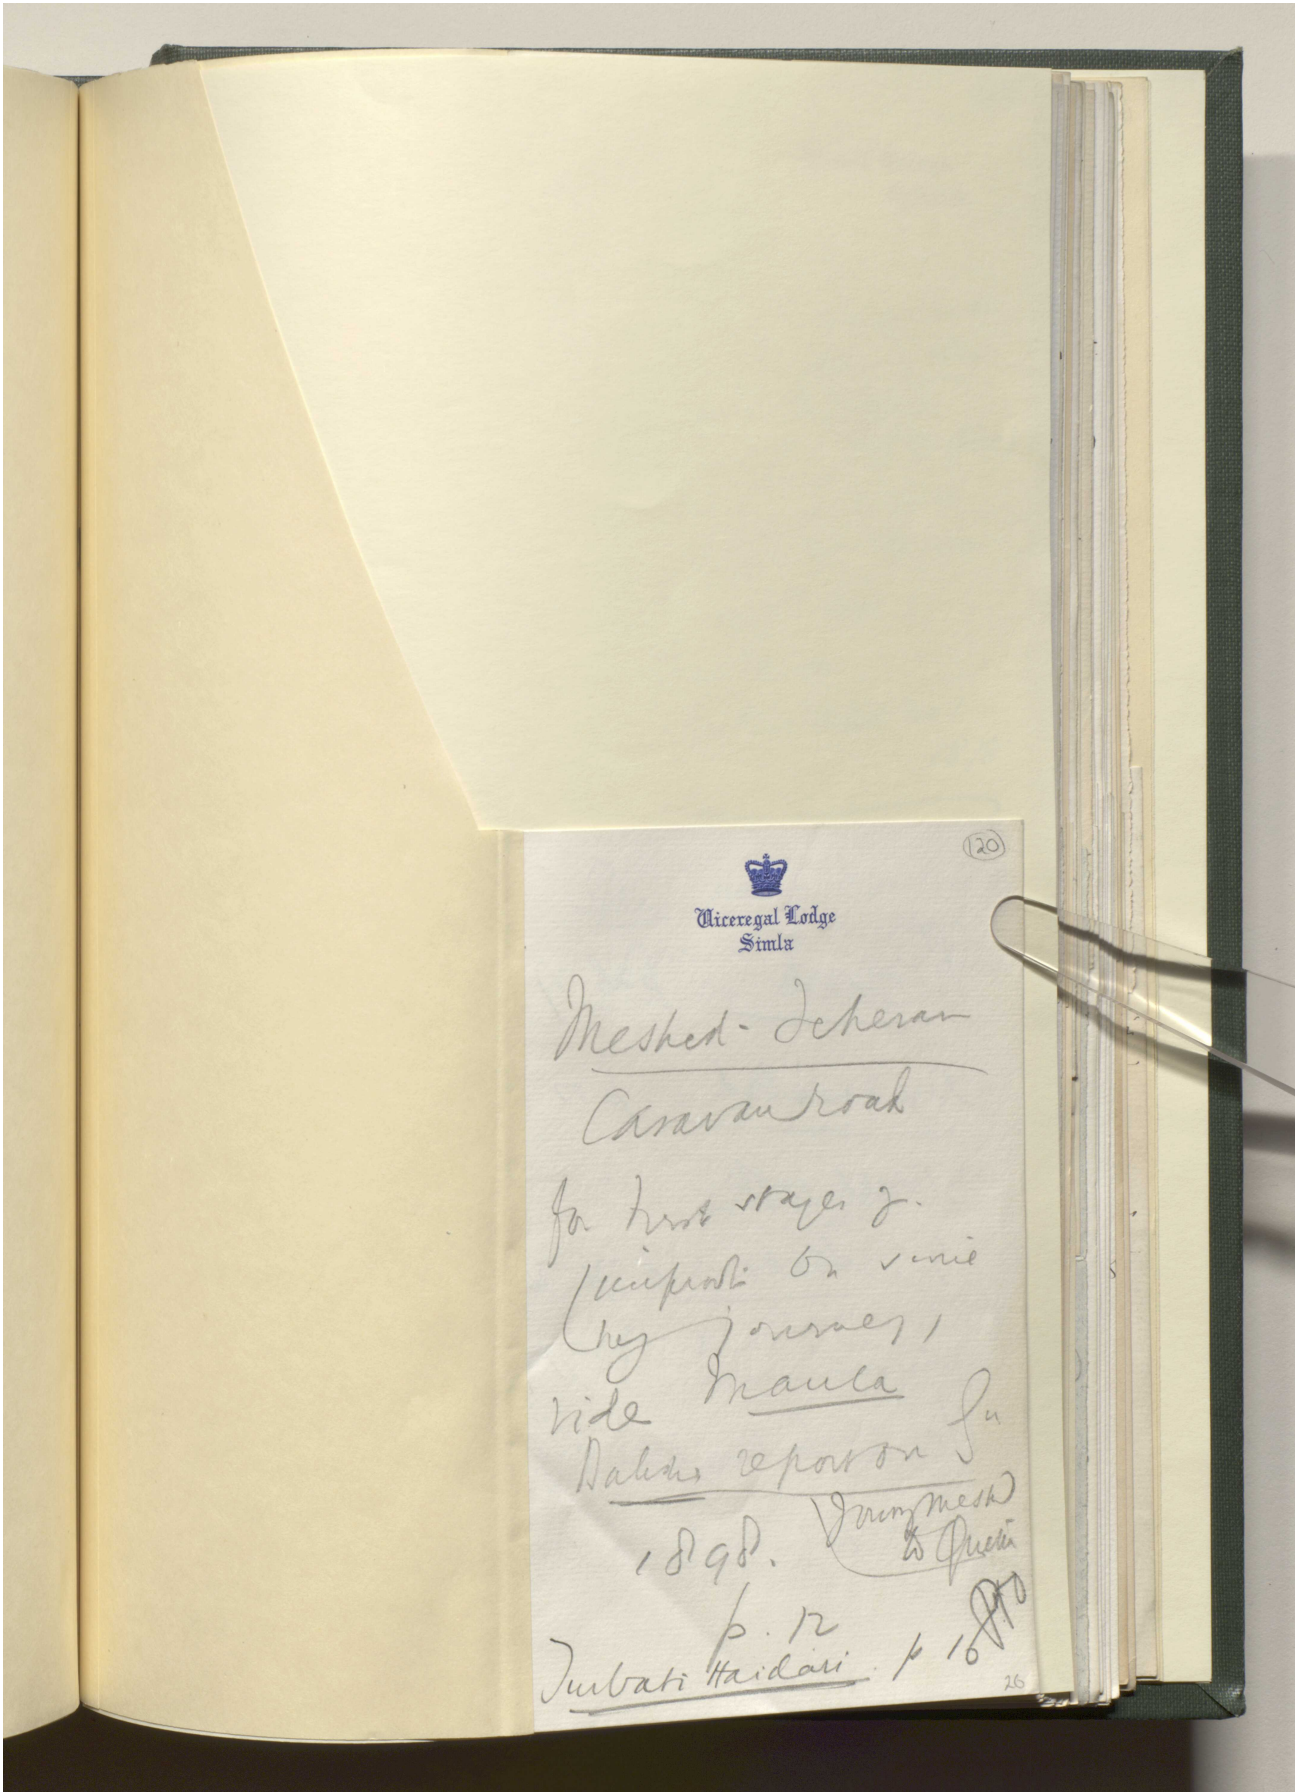 120
Viceregal Lodge
Simla
Meshed - Teheran
Caravan road
for first stages of
on same
journey,
vide Maula
Bakhsh report on
1898. Journey Meshed
to Quetta
p. 12
PTO
Turbati Haidari. p 16
26